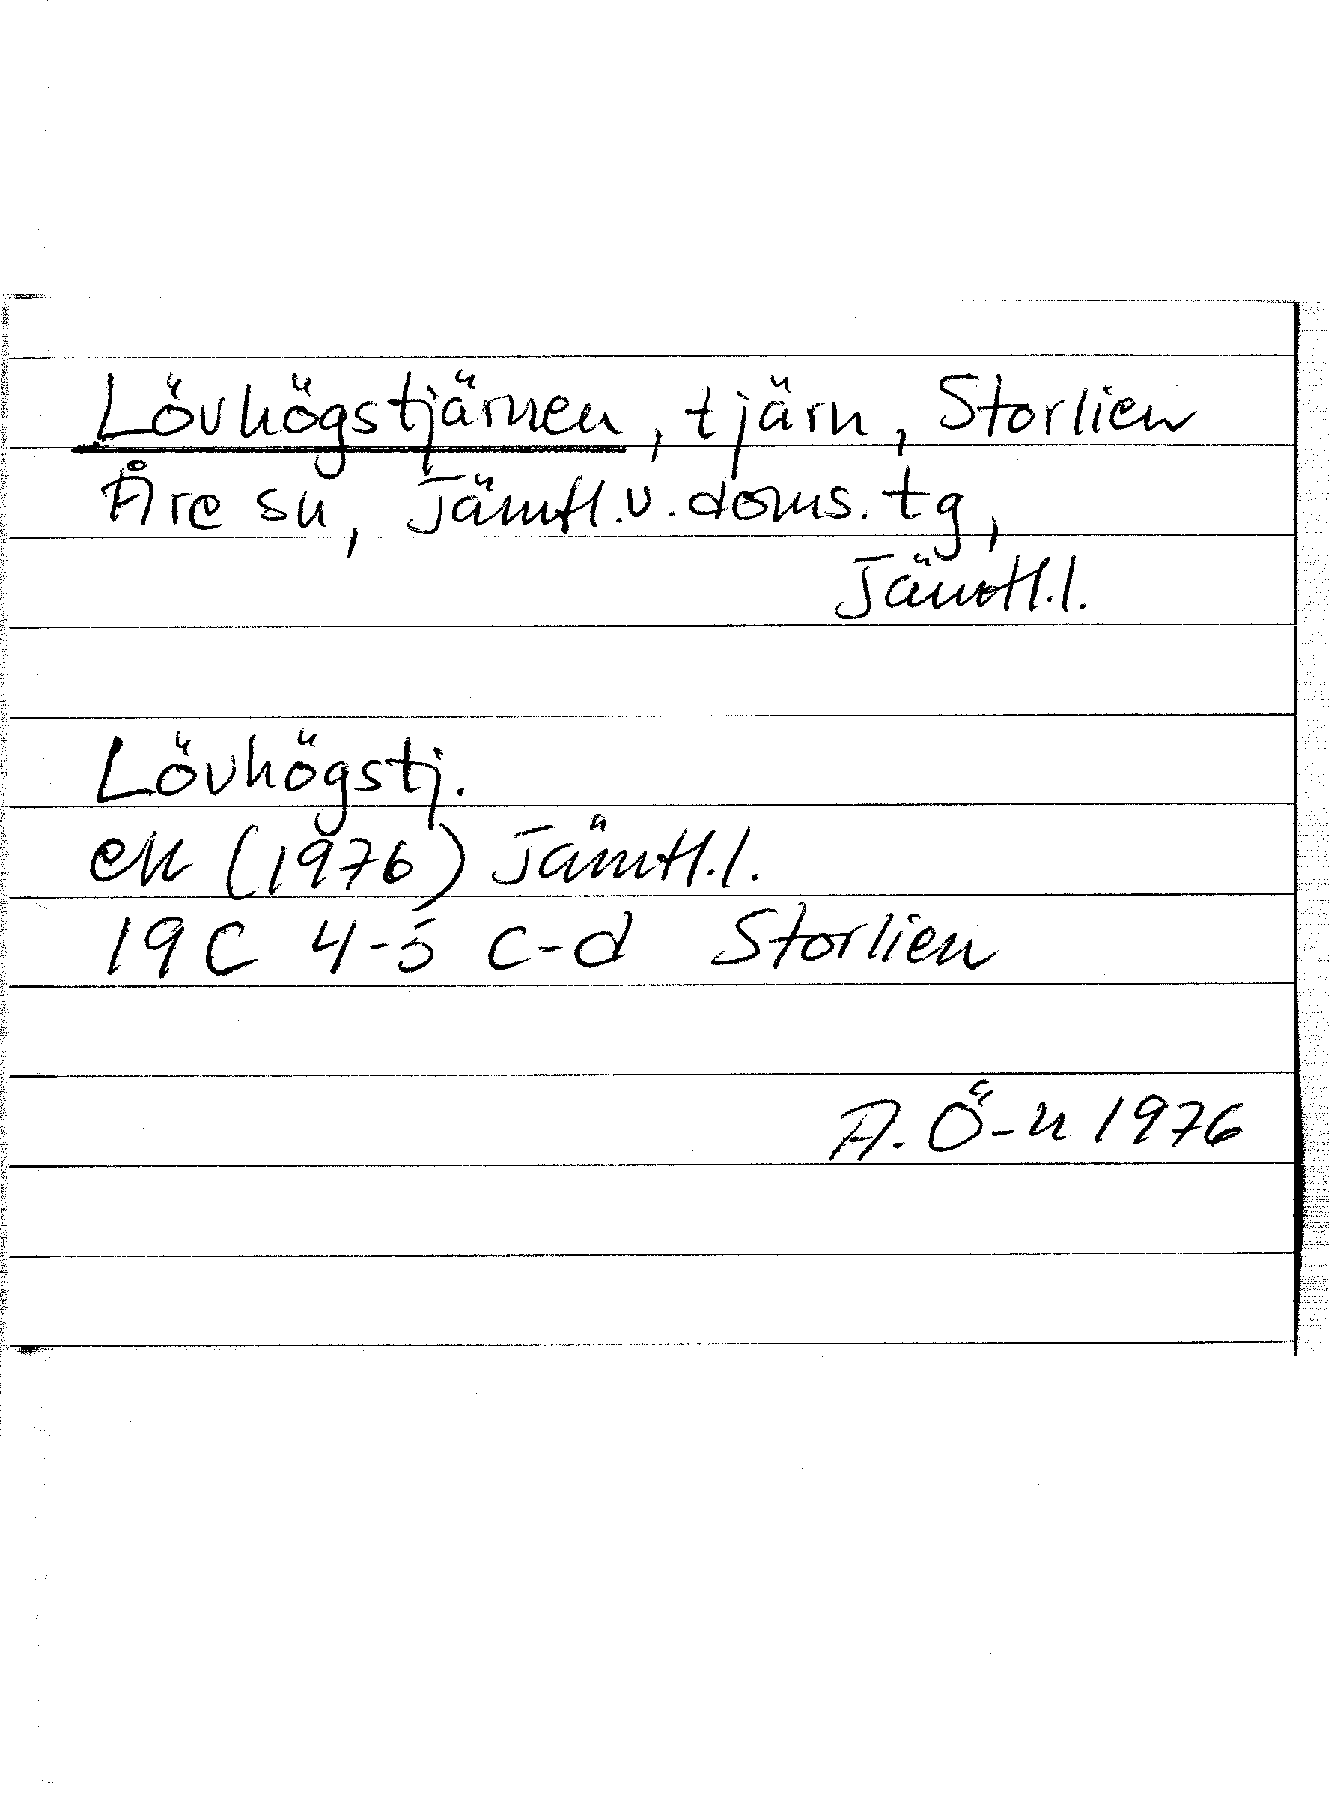 Lövhögstjärnen, tjärn, Storlien
Åre sn, Jämtl.v.doms.tg,
Jämtl.l.
Lövhögstj.
ek (1976) Jämtl.l.
19C 4-5 c-d Storlien
A. Ö-n 1976